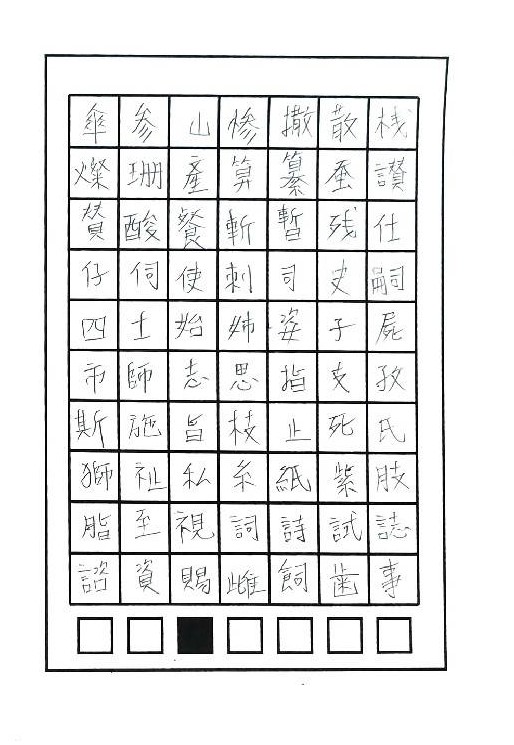 傘参山惨撒散桟
燦珊産算纂蚕讃
賛酸餐斬暫残仕
仔伺使刺司史嗣
四士始姉姿子屍
市師志思指支孜
斯施旨枝止死氏
獅祉私糸紙紫肢
脂至視詞詩試誌
諮資賜雌飼歯事